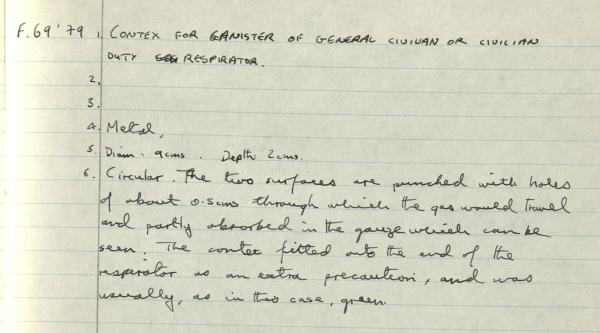 F.69'79 1. CONTEX FOR CANISTER OF GENERAL CIVILIAN OR CIVILIAN
DUTY RESPIRATOR.
2.
3.
4. Metal,
5. Diam. 9cms. Depth 2cms.
6. Circular. The two surfaces are punched with holes
of about 0.5cms through which the gas would travel
and partly absorbed in the gauze which can be
seen. The contex fitted onto the end of the
respirator as an extra precaution, and was
usually, as in this case, green.